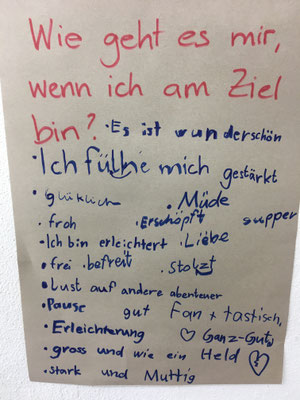 Wie geht es mir,
wenn ich am Ziel
bin? • Es ist wunderschön
• Ich fühle mich gestärkt
• glüklich • Müde
• froh • Erschöpft supper
• Ich bin erleichtert • Liebe
• frei • befreit • Stolzt
• Lust auf andere abenteuer
• Pause gut Fantastisch,
• Erleichterung ♡ Ganz-Gut,
• gross und wie ein Held
• stark und Muttig